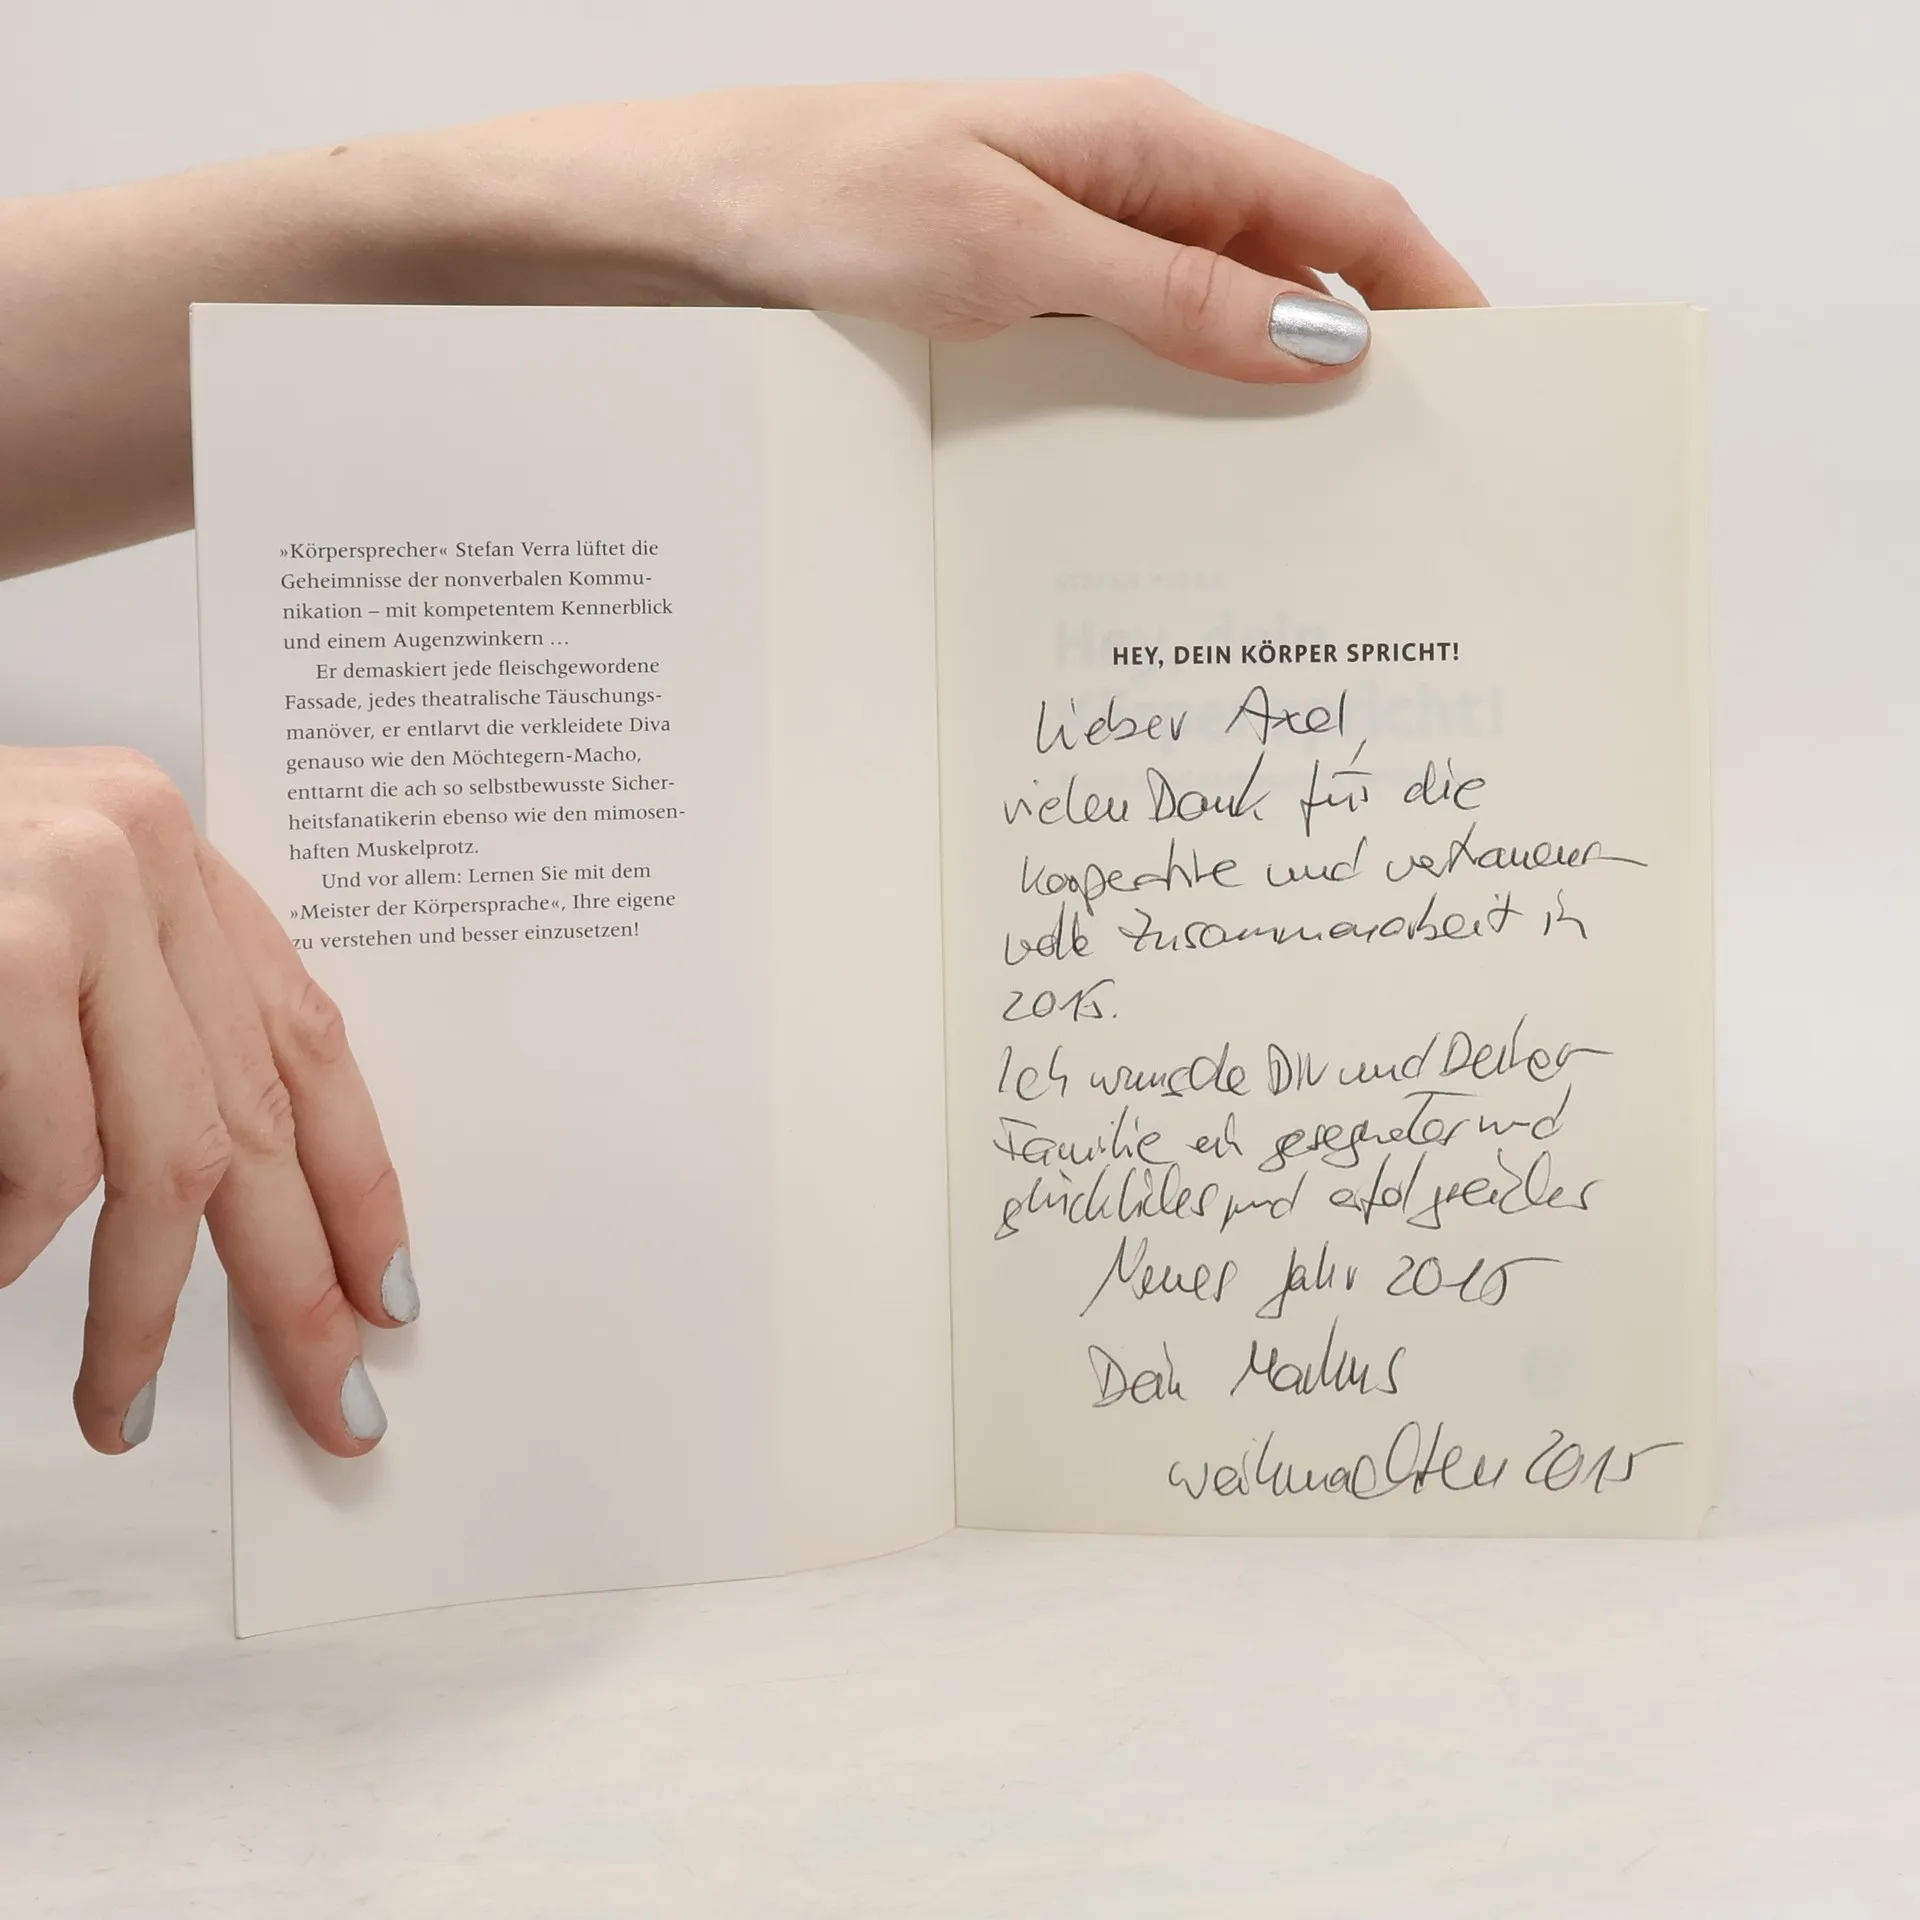 »Körpersprecher« Stefan Verra lüftet die
Geheimnisse der nonverbalen Kommu-
nikation – mit kompetentem Kennerblick
und einem Augenzwinkern …
Er demaskiert jede fleischgewordene
Fassade, jedes theatralische Täuschungs-
manöver, er entlarvt die verkleidete Diva
genauso wie den Möchtegern-Macho,
enttarnt die ach so selbstbewusste Sicher-
heitsfanatikerin ebenso wie den mimosen-
haften Muskelprotz.
Und vor allem: Lernen Sie mit dem
»Meister der Körpersprache«, Ihre eigene
zu verstehen und besser einzusetzen!
HEY, DEIN KÖRPER SPRICHT!
Lieber Axel,
vielen Dank für die
kooperative und vertrauens
volle Zusammenarbeit in
2015.
Ich wünsche Dir und Deiner
Familie ein gesegnetes und
glückliches und erfolgreiches
Neues Jahr 2015
Dein Markus
Weihnachten 2015